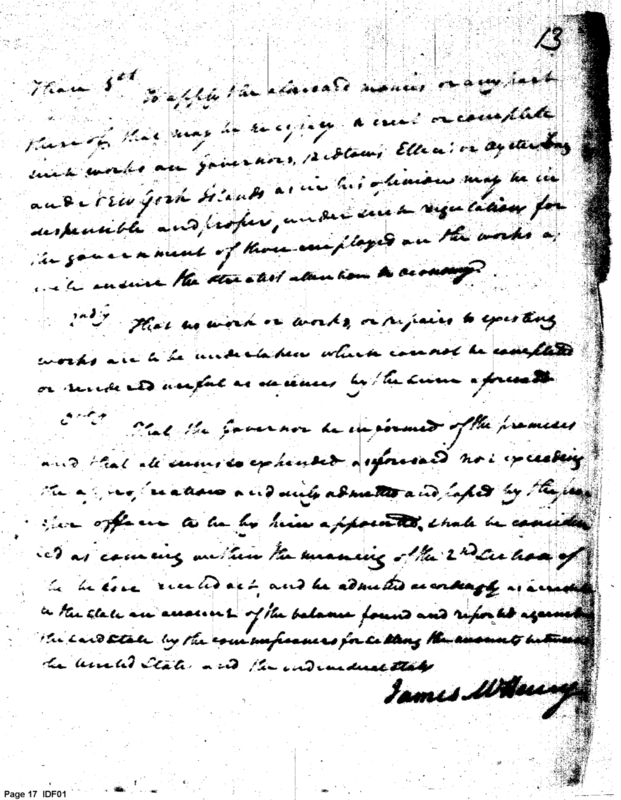 13
To apply the aforesaid monies or any part
thereof, that may be necessary to erect or complete
such works on Governors, Bedlows, Ellis's or Oyster
and New York Islands as in his opinion may be in
dispensible and proper, under such regulations for
the government of those employed on the works as
will ensure the strictest attention to economy.
That no work or works, or repairs to existing
works are to be undertaken which cannot be completed
or rendered useful as defences by the sum aforesaid
That the Governor be informed of the premises
and that all sums so expended as aforesaid not exceeding
the appropriation and duly admitted and passed by the
officer to be by him appointed, shall be consider
ed as coming within the meaning of the 2nd Section of
the before recited act, and be admitted accordingly as a credit
to the State on account of the balance found and reported against
the said State by the commissioners for settling the accounts between
the United States and the individual States
James McHenry
Page 17 IDF01